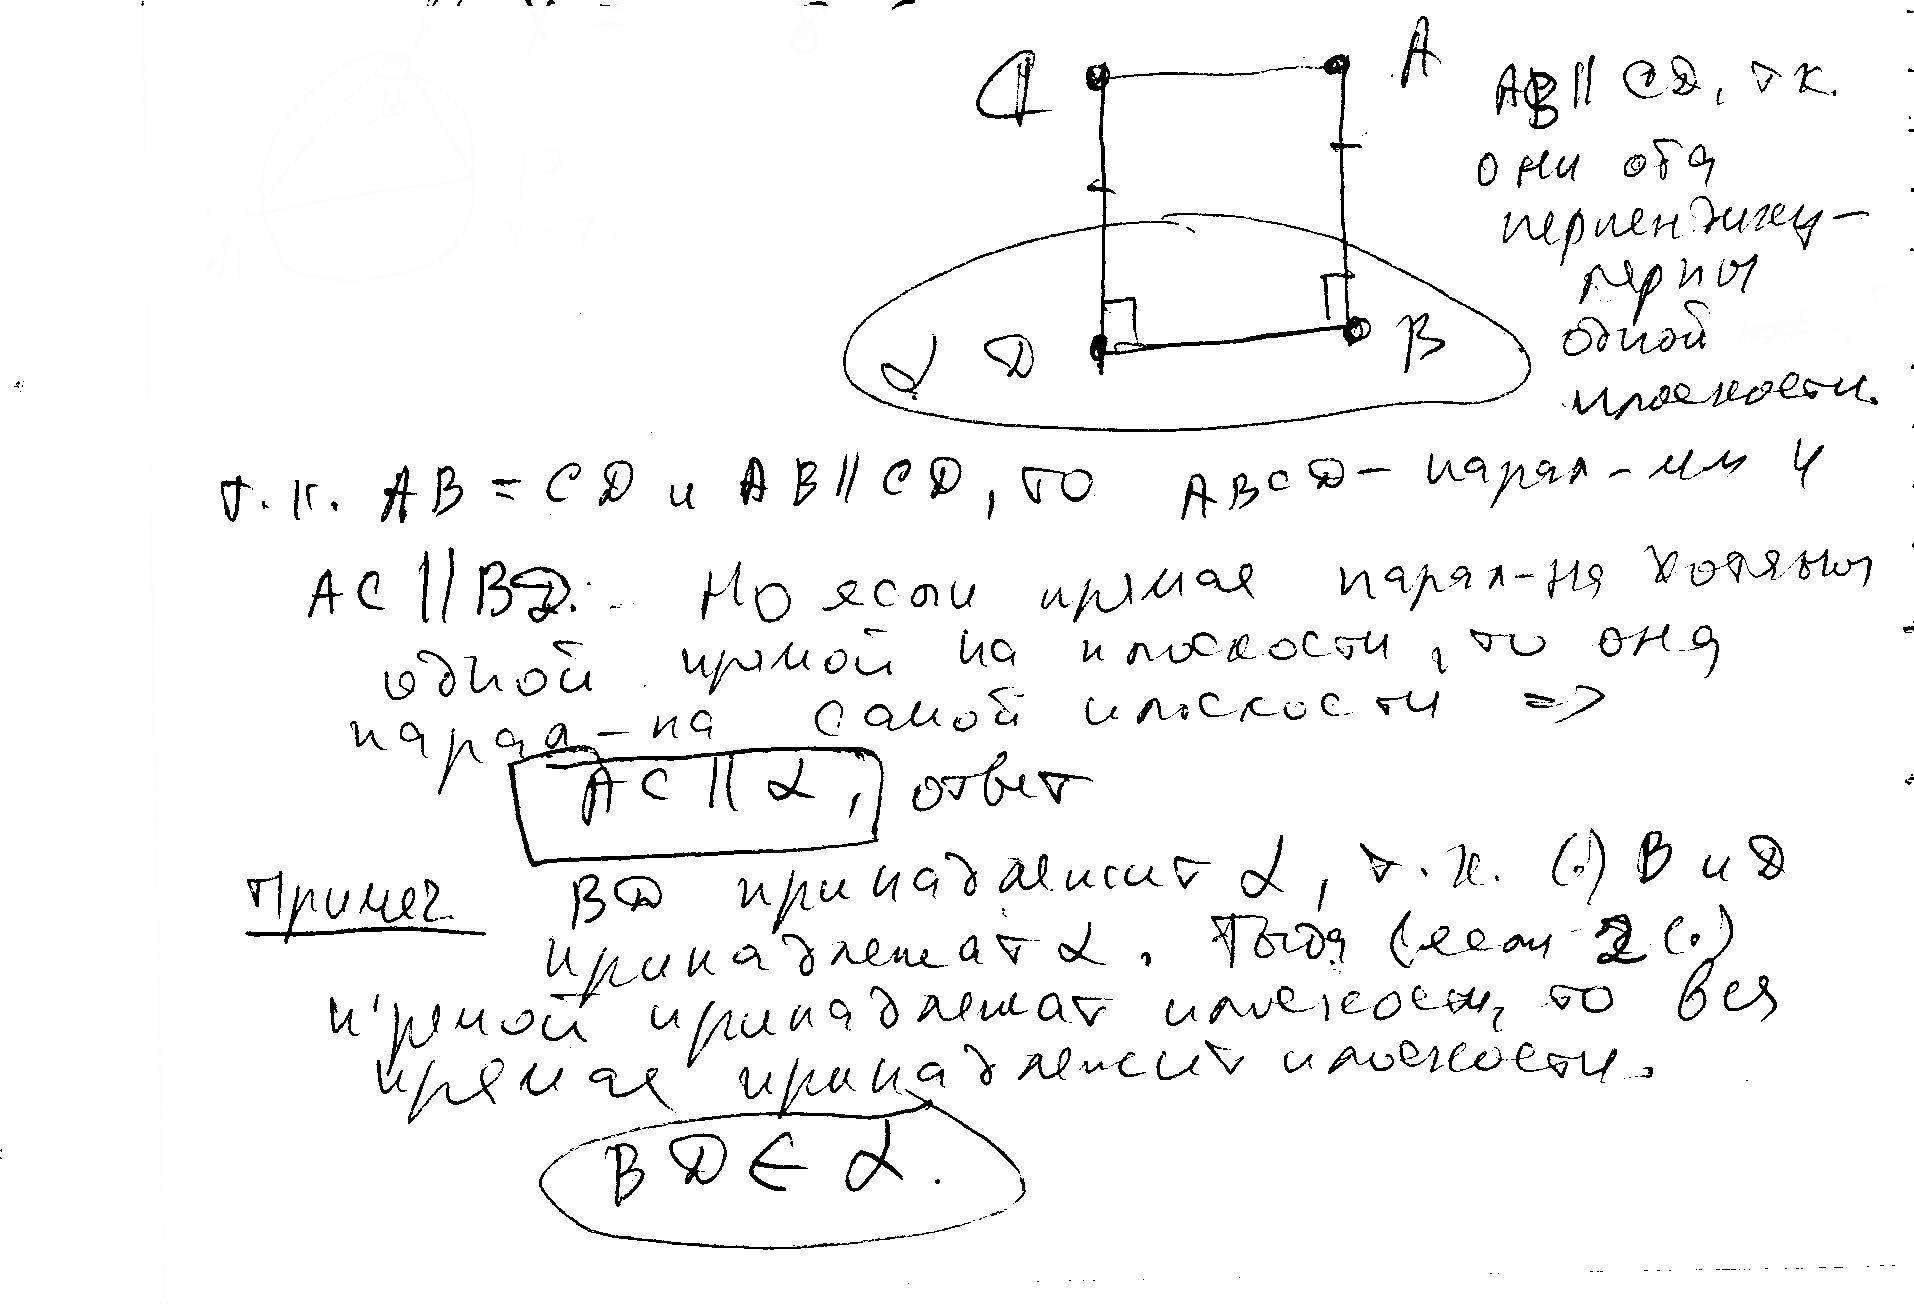 C
A
AB || CD, т.к.
они оба
перпендику-
лярны
одной
плоскости.
α D
B
т.к. AB = CD и AB || CD, то ABCD - парал-мм и
AC || BD. Но если прямая парал-на хотябы
одной прямой на плоскости, то она
парал-на самой плоскости =>
AC || α, ответ
Примеч. BD принадлежит α, т.к. (.) B и D
принадлежат α. Тогда (если 2 (.)
прямой принадлежат плоскости, то вся
прямая принадлежит плоскости.
BD ∈ α.